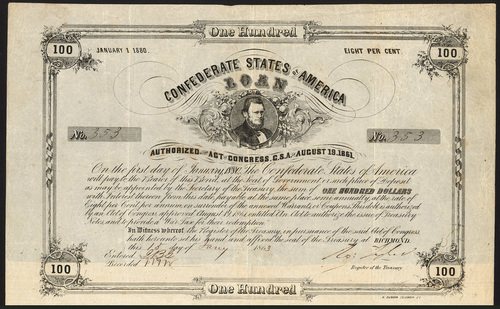 One Hundred
100
JANUARY 1 1880.
EIGHT PER CENT
100
CONFEDERATE STATES OF AMERICA
LOAN
No. 353
No. 353
AUTHORIZED BY ACT OF CONGRESS, C.S.A. OF AUGUST 19, 1861.
On the first day of January 1880, the Confederate States of America
will pay to the Bearer of this Bond, at the Seat of Government, or such place of Deposit
as may be appointed by the Secretary of the Treasury, the sum of ONE HUNDRED DOLLARS
with Interest thereon from this date, payable at the same place, semi annually, at the rate of
Eight per Cent per annum, on surrender of the annexed Warrants or Coupons. This debt is authorized
by an Act of Congress approved August 19 1861 entitled An Act to authorize the issue of Treasury
Notes, and to provide a War Tax for their redemption
In Witness whereof, the Register of the Treasury, in pursuance of the said Act of Congress,
hath hereunto set his Hand, and affixed the seal of the Treasury, at RICHMOND,
this day of 1863
Entered
Recorded
Register of the Treasury
100
One Hundred
100